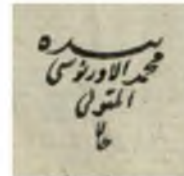 بيده
محمد الاورنوسى
المتولى
حالا